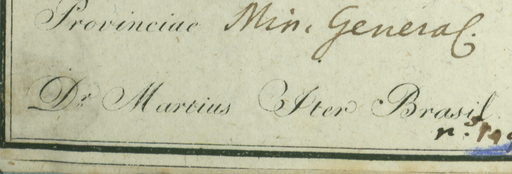 Provinciae Min. Generaes.
Dr. Martius Iter Brasil.
n.